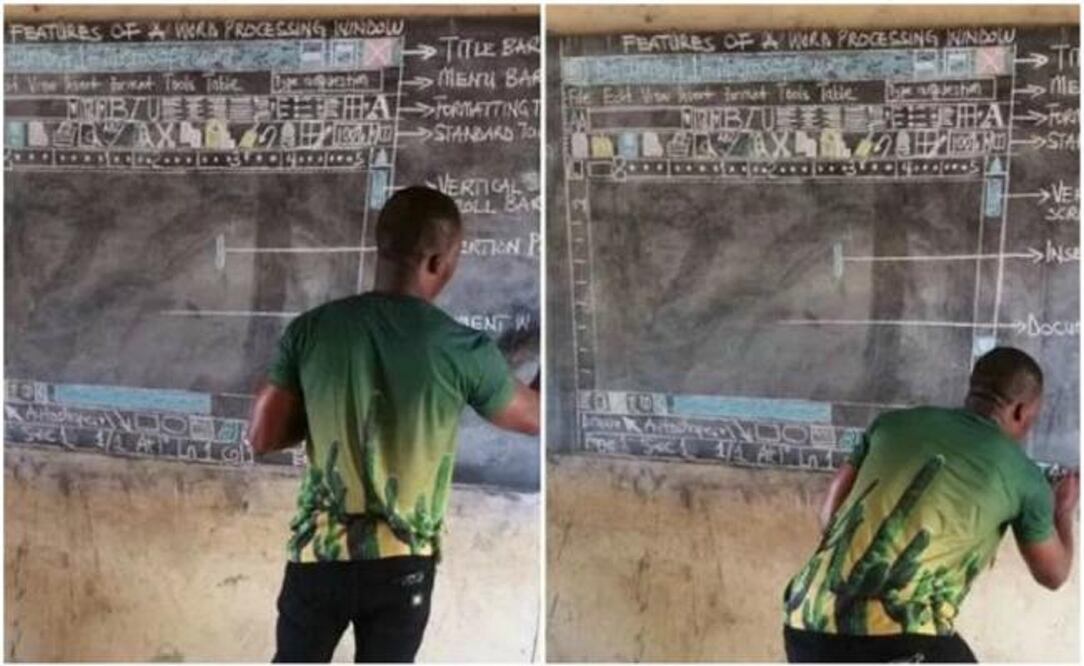 FEATURES OF A WORD PROCESSING WINDOW
TITLE BAR
View Insert Format Tools Table
Type a question
MENU BAR
B/U
A
FORMATTING T
100%
STANDARD TO
VERTICAL
OLL BAR
RTION P
MENT W
Autoshapes
Sec 1 1/1 At 1" Ln 1
FEATURES OF A WORD PROCESSING WINDOW
TIT
File Edit View Insert Format Tools Table
Type a question
ME
B/U
A
FOR
100%
STA
VE
SCR
INSE
DOCU
Draw Autoshapes
Page 1 Sec 1 1/1 At 1" Ln 1
STA